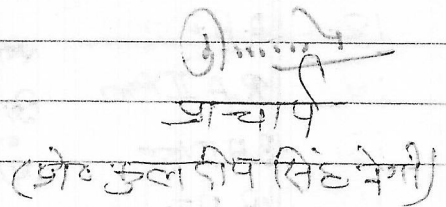 प्राचार्य
(प्रो० कुलदीप सिंह नेगी)